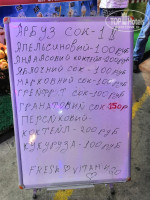 TopHotels
АРБУЗ СОК - 1$
АПЕЛЬСИНОВЫЙ - 100 РУБ
АНАНАСОВЫЙ КОКТЕЛ - 200 РУБ
ЯБЛОЧНИЙ СОК - 100 РУБ
МАРКОВНИЙ СОК - 100 РУБ
ГРЕЙПФРУТ СОК - 100 РУБ
ГРАНАТОВИЙ СОК 150Р
ПЕРСИКОВИЙ
КОКТЕЙЛ - 200 РУБ
КУКУРУЗА - 100 РУБ
FRESH VITAMIN